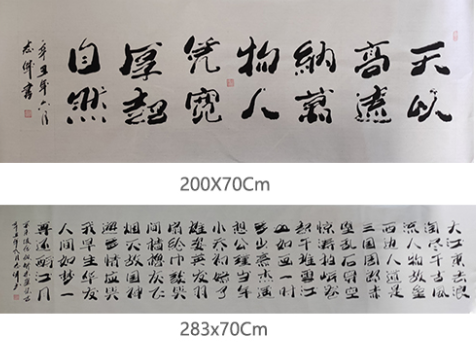 天以
高遠
納萬
物人
凭寬
厚超
自然
辛丑年六月
志伟書
200X70Cm
大江東去浪
淘尽千古風
流人物故壘
西边人道是
三國周郎赤
壁乱石穿空
驚濤拍岸卷
起千堆雪江
山如画一時
多少豪杰遥
想公瑾當年
小乔初嫁了
雄姿英发羽
扇綸巾談笑
间檣櫓灰飞
烟滅故國神
游多情應笑
我早生华发
人间如夢一
尊还酹江月
283x70Cm